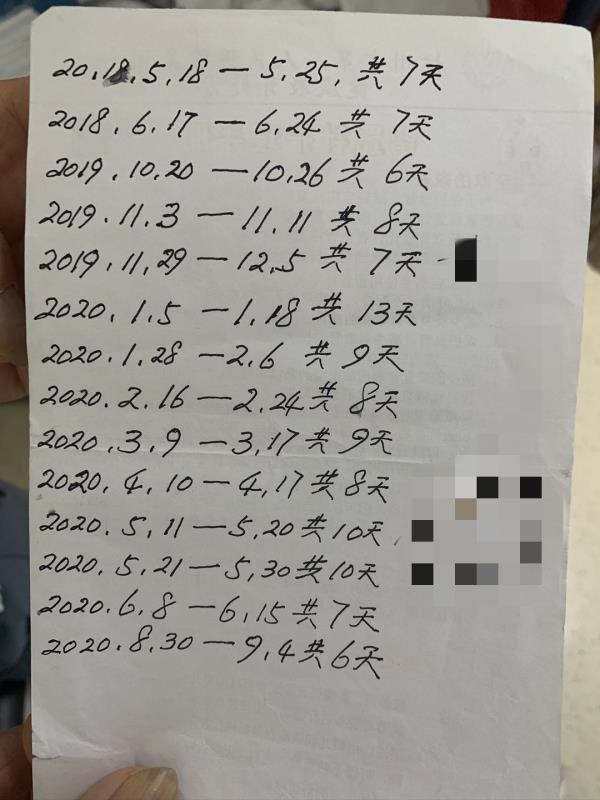 2018.5.18—5.25.共7天
2018.6.17—6.24 共 7天
2019.10.20—10.26 共 6天
2019.11.3—11.11 共 8天
2019.11.29—12.5 共 7天
2020.1.5—1.18 共 13天
2020.1.28—2.6 共 9天
2020.2.16—2.24共 8天
2020.3.9—3.17共9天
2020.4.10—4.17共8天
2020.5.11—5.20共10天
2020.5.21—5.30共10天
2020.6.8—6.15共7天
2020.8.30—9.4共6天